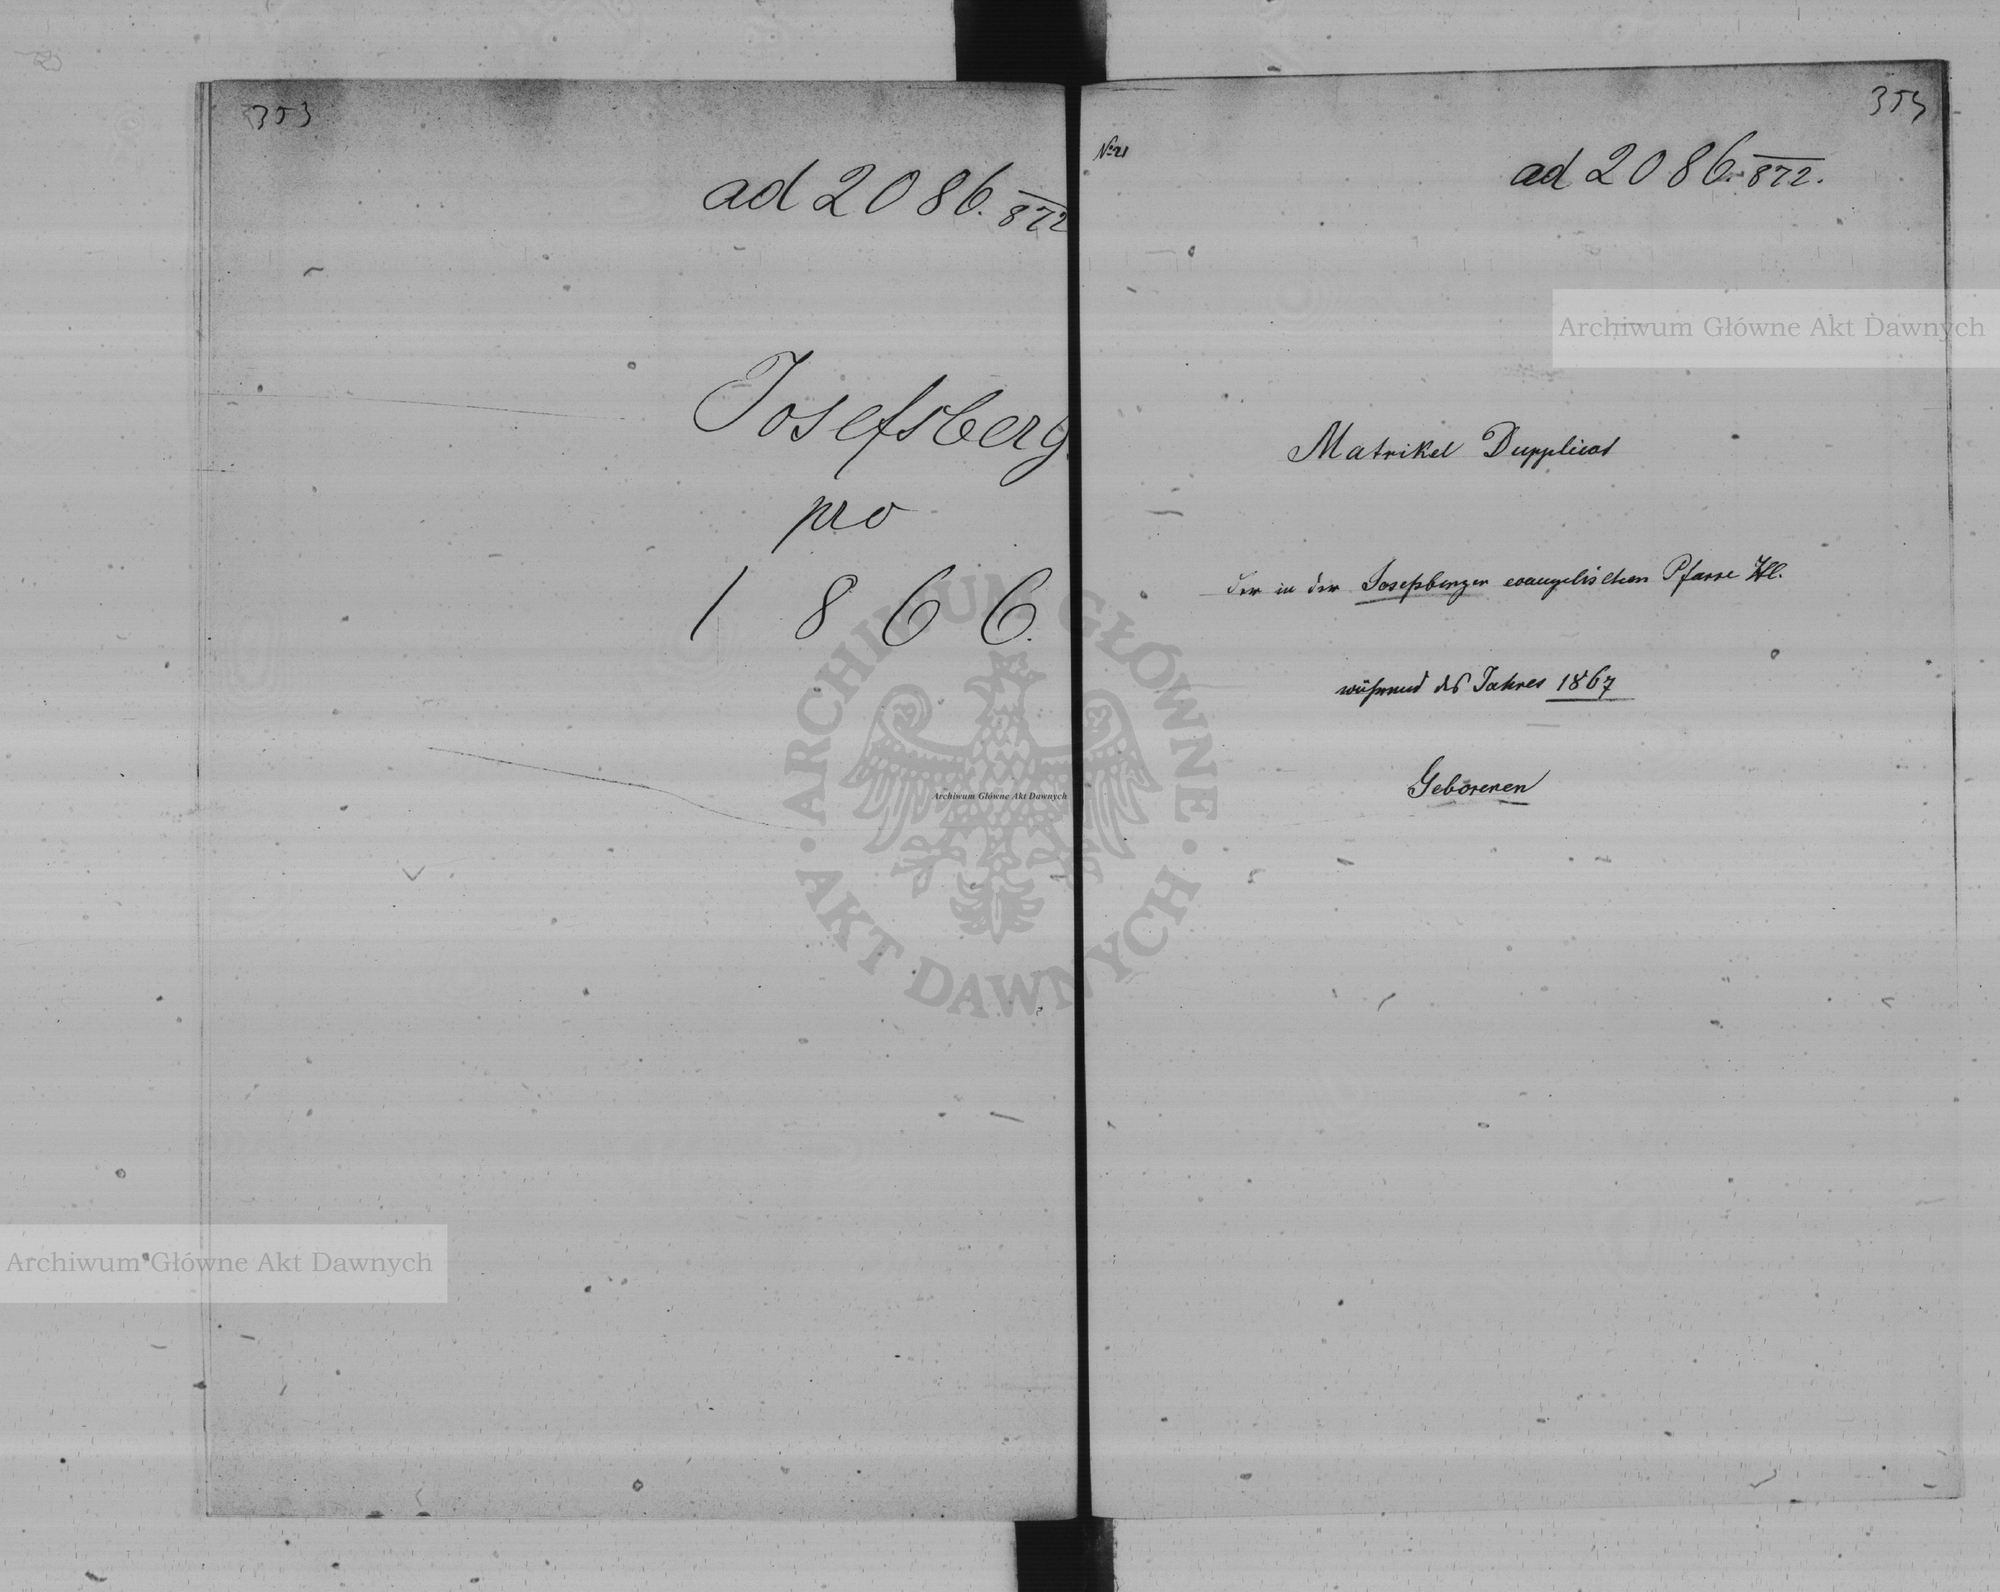 353
ad 2086. 872
Josefsberg
pro
1866.
Archiwum Główne Akt Dawnych
Archiwum Główne Akt Dawnych
353
No 21
ad 2086. 872.
Archiwum Główne Akt Dawnych
Matrikel Dupplicat
der in der Josefsberger evangelischen Pfarre
während des Jahres 1867
Geborenen
ARCHIWUM GŁÓWNE AKT DAWNYCH